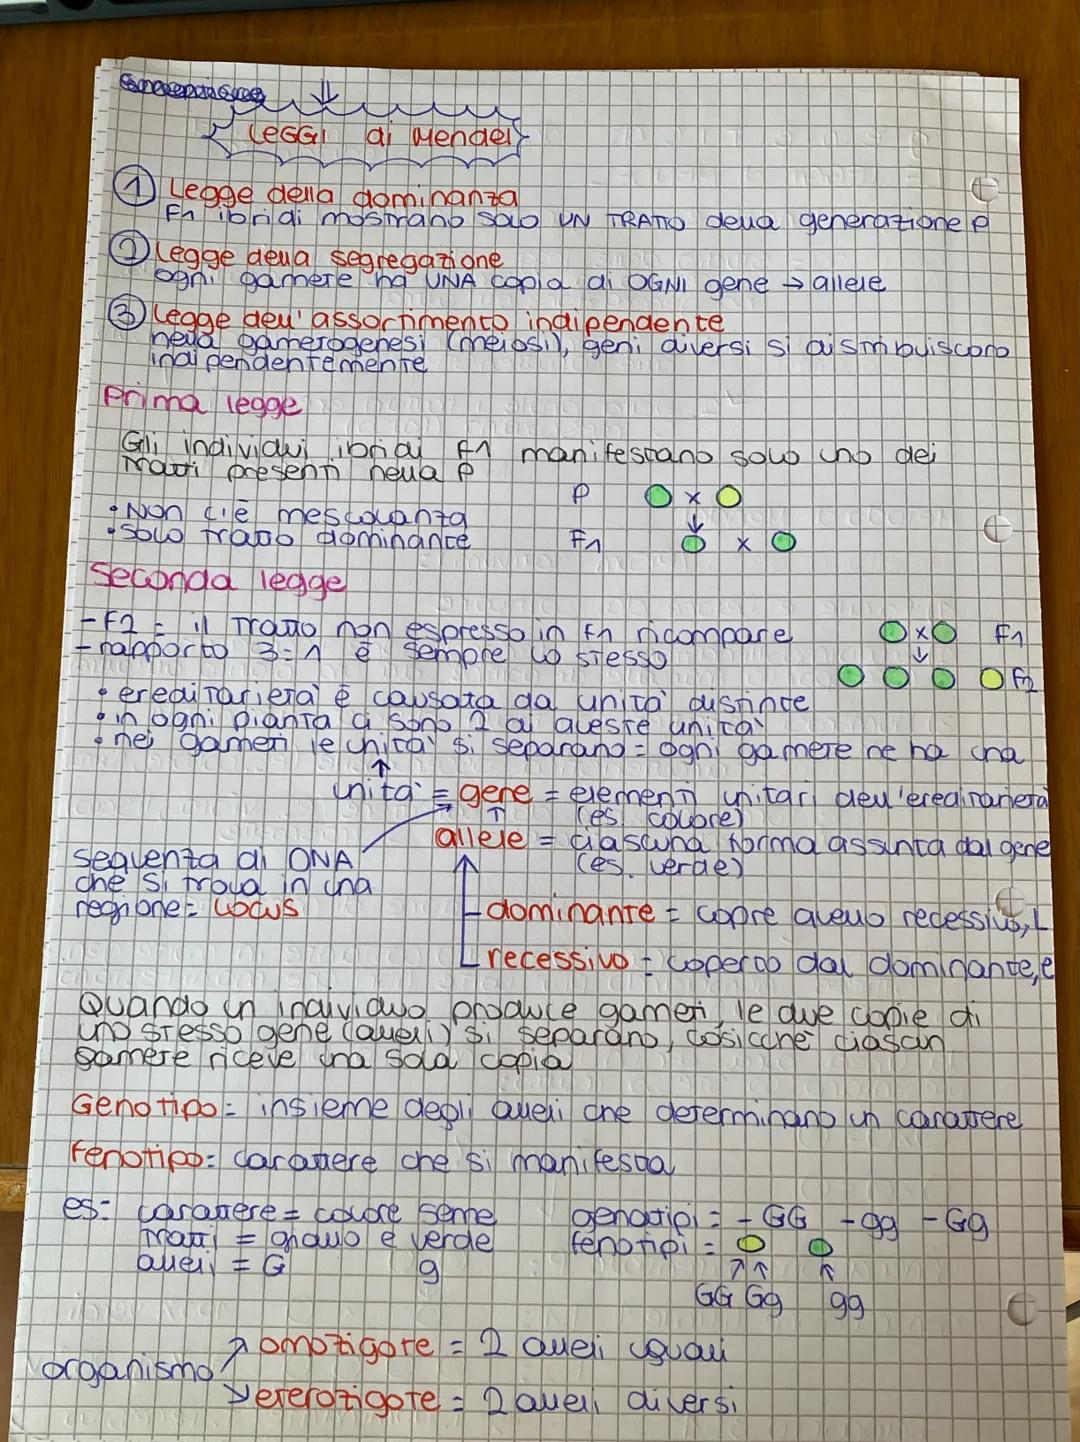 LEGGI di Mendel
① Legge della dominanza
F1 ibridi mostrano solo UN TRATTO della generazione P
② Legge della segregazione
ogni gamete ha UNA copia di OGNI gene → allele
③ Legge dell'assortimento indipendente
nella gametogenesi (meiosi), geni diversi si distribuiscono
indipendentemente
Prima legge
Gli individui ibridi F1 manifestano solo uno dei
tratti presenti nella P
P x
• Non c'è mescolanza
• Solo tratto dominante F1 x
Seconda legge
- F2 = il tratto non espresso in F1 ricompare x F1
- rapporto 3:1 è sempre lo stesso
F2
• ereditarietà è causata da unità distinte
• in ogni pianta ci sono 2 di queste unità
• nei gameti le unità si separano = ogni gamete ne ha una
unità = gene = elementi unitari dell'ereditarietà
(es. colore)
allele = ciascuna forma assunta dal gene
(es. verde)
sequenza di DNA
che si trova in una
regione = Locus
dominante = copre quello recessivo, L
recessivo = coperto dal dominante, e
Quando un individuo produce gameti, le due copie di
uno stesso gene (alleli) si separano, cosicchè ciascun
gamete riceve una sola copia
Genotipo: insieme degli alleli che determinano un carattere
Fenotipo: carattere che si manifesta
es: carattere = colore seme genotipi = - GG - gg - Gg
tratti = giallo e verde fenotipi =
alleli = G g
GG Gg gg
organismo
omozigote = 2 alleli uguali
eterozigote = 2 alleli diversi